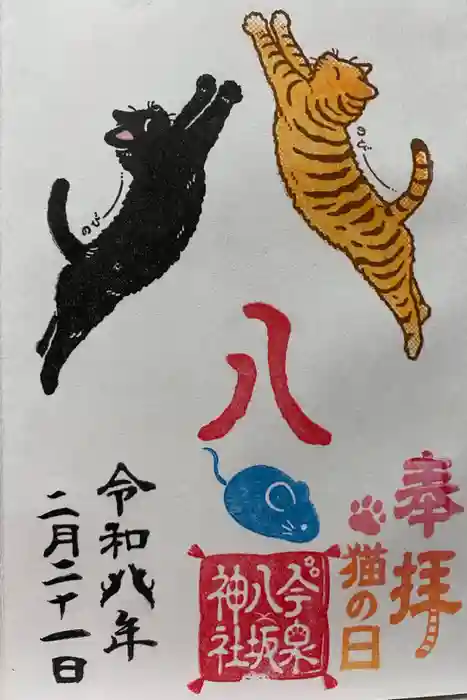 のび
のび
八
奉拝
猫の日
今泉
八坂
神社
令和八年
二月二十一日